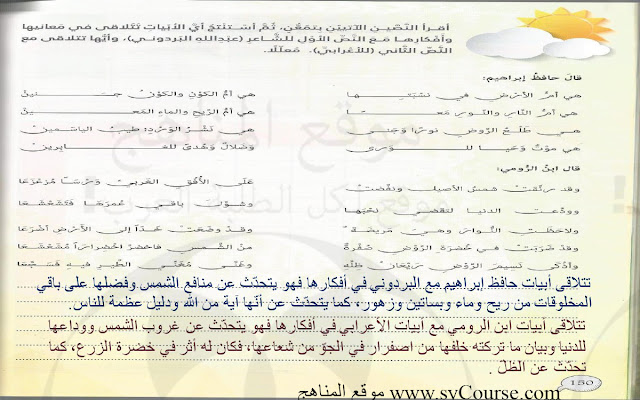 أقرأ النصّين الآتيين بتمعّن، ثمّ أستنتج أيّ الأبيات تتلاقى في معانيها
وأفكارها مع النصّ الأوّل للشاعر (عبدالله البردوني)، وأيّها تتلاقى مع
النصّ الثاني (للأعرابي)، معلّلًا.
قال حافظ إبراهيم:
هي أمّ الأرض في نسبتها هي أمّ الكون والكون جنين
هي أمّ النار والنور معًا هي أمّ الريح والماء المعين
هي طلع الروض نورًا وجنى هي نشر الورد، طيب الياسمين
هي موت وحيا للورى وضلال وهدى للغابرين
قال ابن الرومي:
وقد رنّقت شمس الأصيل ونفّضت على الأفق الغربيّ ورسًا مزعزعا
وودّعت الدنيا لتقضي نحبها وشوّل باقي عمرها فتشعشعا
ولاحظت النوّار وهي مريضة وقد وضعت خدًّا إلى الأرض أضرعا
وقد ضربت في خضرة الروض صفرة من الشمس فاخضرّ اخضرارًا مشعشعا
وأذكى نسيم الروض ريعان ظلّه وغنّى مغنّي الطير فيه فسجّعا
تتلاقى أبيات حافظ إبراهيم مع البردوني في أفكارها فهو يتحدّث عن منافع الشمس وفضلها على باقي
المخلوقات من ريح وماء وبساتين وزهور، كما يتحدّث عن أنّها آية من الله ودليل عظمة للناس.
تتلاقى أبيات ابن الرومي مع أبيات الأعرابي في أفكارها فهو يتحدّث عن غروب الشمس ووداعها
للدنيا وبيان ما تركته خلفها من اصفرار في الجوّ من شعاعها، فكان له أثر في خضرة الزرع، كما
تحدّث عن الظلّ .
150
موقع المناهج www.syCourse.com